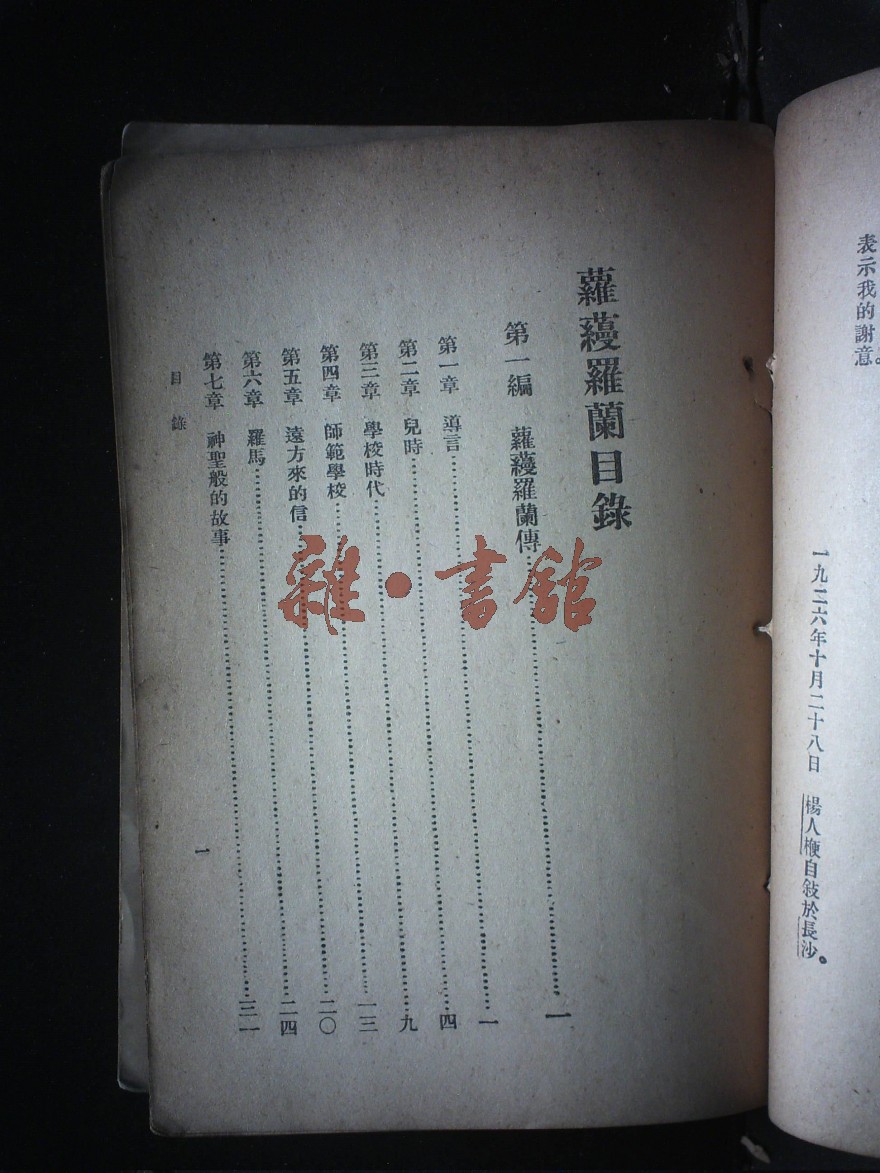 表示我的謝意。
一九二六年十月二十八日 楊人楩自敍於長沙。
蘿蘰羅蘭目錄
第一編 蘿蘰羅蘭傳……一
第一章 導言……一
第二章 兒時……四
第三章 學校時代……九
第四章 師範學校……一三
第五章 遠方來的信……二〇
第六章 羅馬……二四
第七章 神聖般的故事……三一
目錄
一
雜·書館